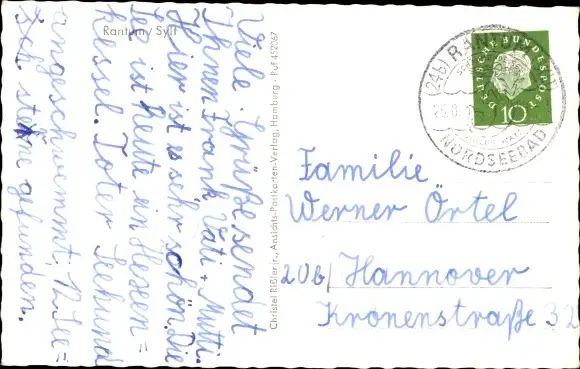 Rantum/Sylt
Viele Grüße sendet
Ihnen Frank Vati + Mutti.
Hier ist es sehr schön. Die
See ist heute ein Hexen=
kessel. Toter Seehund
angeschwemmt, 12 See=
sterne gefunden.
Christel Rißler jr., Ansichts-Postkarten-Verlag, Hamburg · Ruf 452067
(24b) RANTUM
25.8.
NORDSEEBAD
DEUTSCHE BUNDESPOST
10
Familie
Werner Örtel
20b/ Hannover
Kronenstraße 32